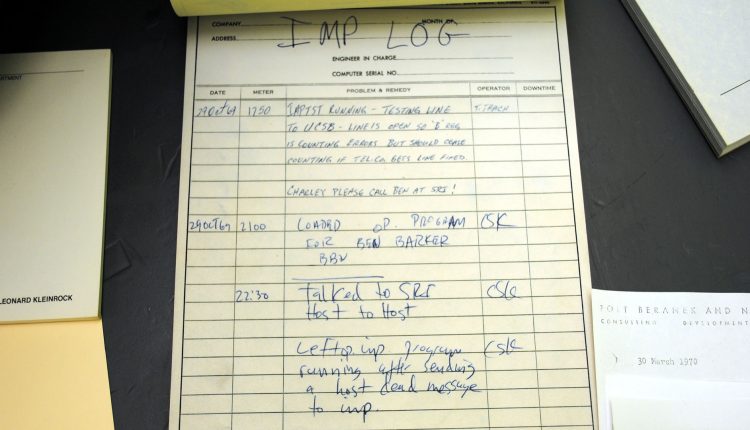 COMPANY MONTH OF
ADDRESS
IMP LOG
ENGINEER IN CHARGE
COMPUTER SERIAL NO.
DATE METER PROBLEM & REMEDY OPERATOR DOWNTIME
29 Oct 69 1750 IMPTST RUNNING - TESTING LINE
TO UCSB - LINE IS OPEN SO 'B' REG
IS COUNTING ERRORS BUT SHOULD CEASE
COUNTING IF TELCO. GETS LINE FIXED.
CHARLEY PLEASE CALL BEN AT SRI!
29 OCT 69 2100 LOADED OP. PROGRAM CSK
FOR BEN BARKER
BBN
22:30 Talked to SRI CSK
Host to Host
Left op. imp program CSK
running after sending
a host dead message
to imp.
LEONARD KLEINROCK
BOLT BERANEK AND N
CONSULTING DEVELOPMENT
30 March 1970